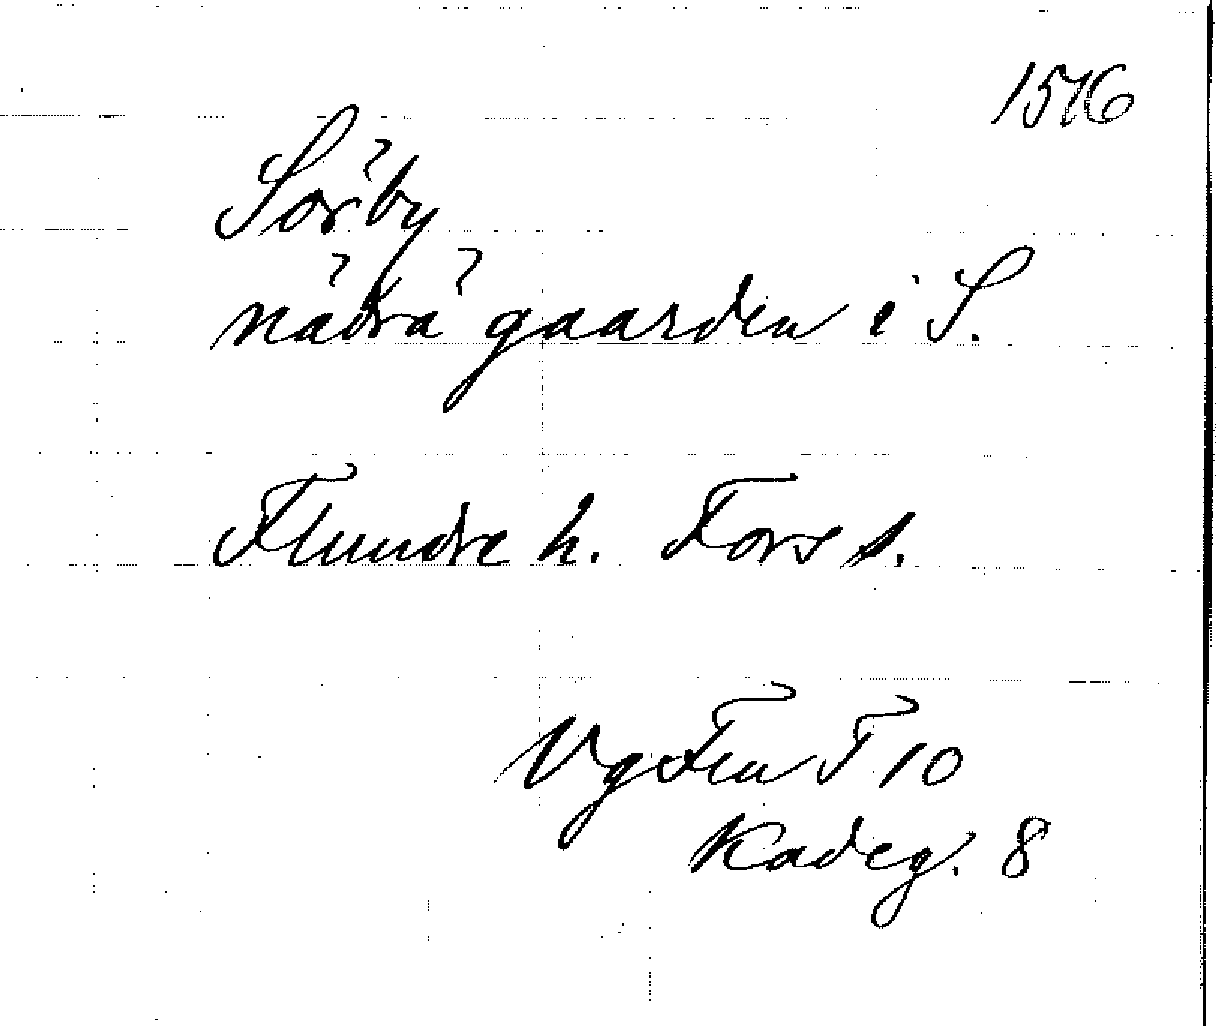 1546
Sörby
nädrä gaarden i S.
Flundre h. Fors s.
Vg Fru F 10
Kadeg. 8